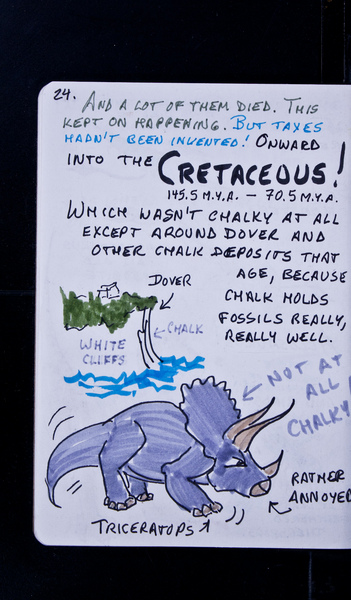 24.
AND A LOT OF THEM DIED. THIS
KEPT ON HAPPENING. BUT TAXES
HADN'T BEEN INVENTED! ONWARD
INTO THE CRETACEOUS!
145.5 M.Y.A. – 70.5 M.Y.A.
WHICH WASN'T CHALKY AT ALL
EXCEPT AROUND DOVER AND
OTHER CHALK DEPOSITS THAT
AGE, BECAUSE
CHALK HOLDS
FOSSILS REALLY,
REALLY WELL.
DOVER
CHALK
WHITE
CLIFFS
NOT AT
ALL
CHALKY!
RATHER
ANNOYED
TRICERATOPS